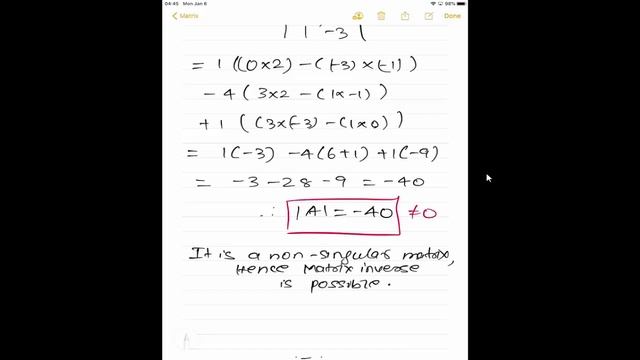 04:45 Mon Jan 6
98%
Matrix
Done
1 -3 |
= 1 ((0×2) - (-3) × (-1))
- 4 (3×2 - (1×-1))
+1 ((3×(-3) - (1×0))
= 1(-3) - 4(6+1) + 1(-9)
= -3 - 28 - 9 = -40
∴ |A| = -40 ≠0
It is a non-singular matrix,
Hence Matrix inverse
is possible.
A